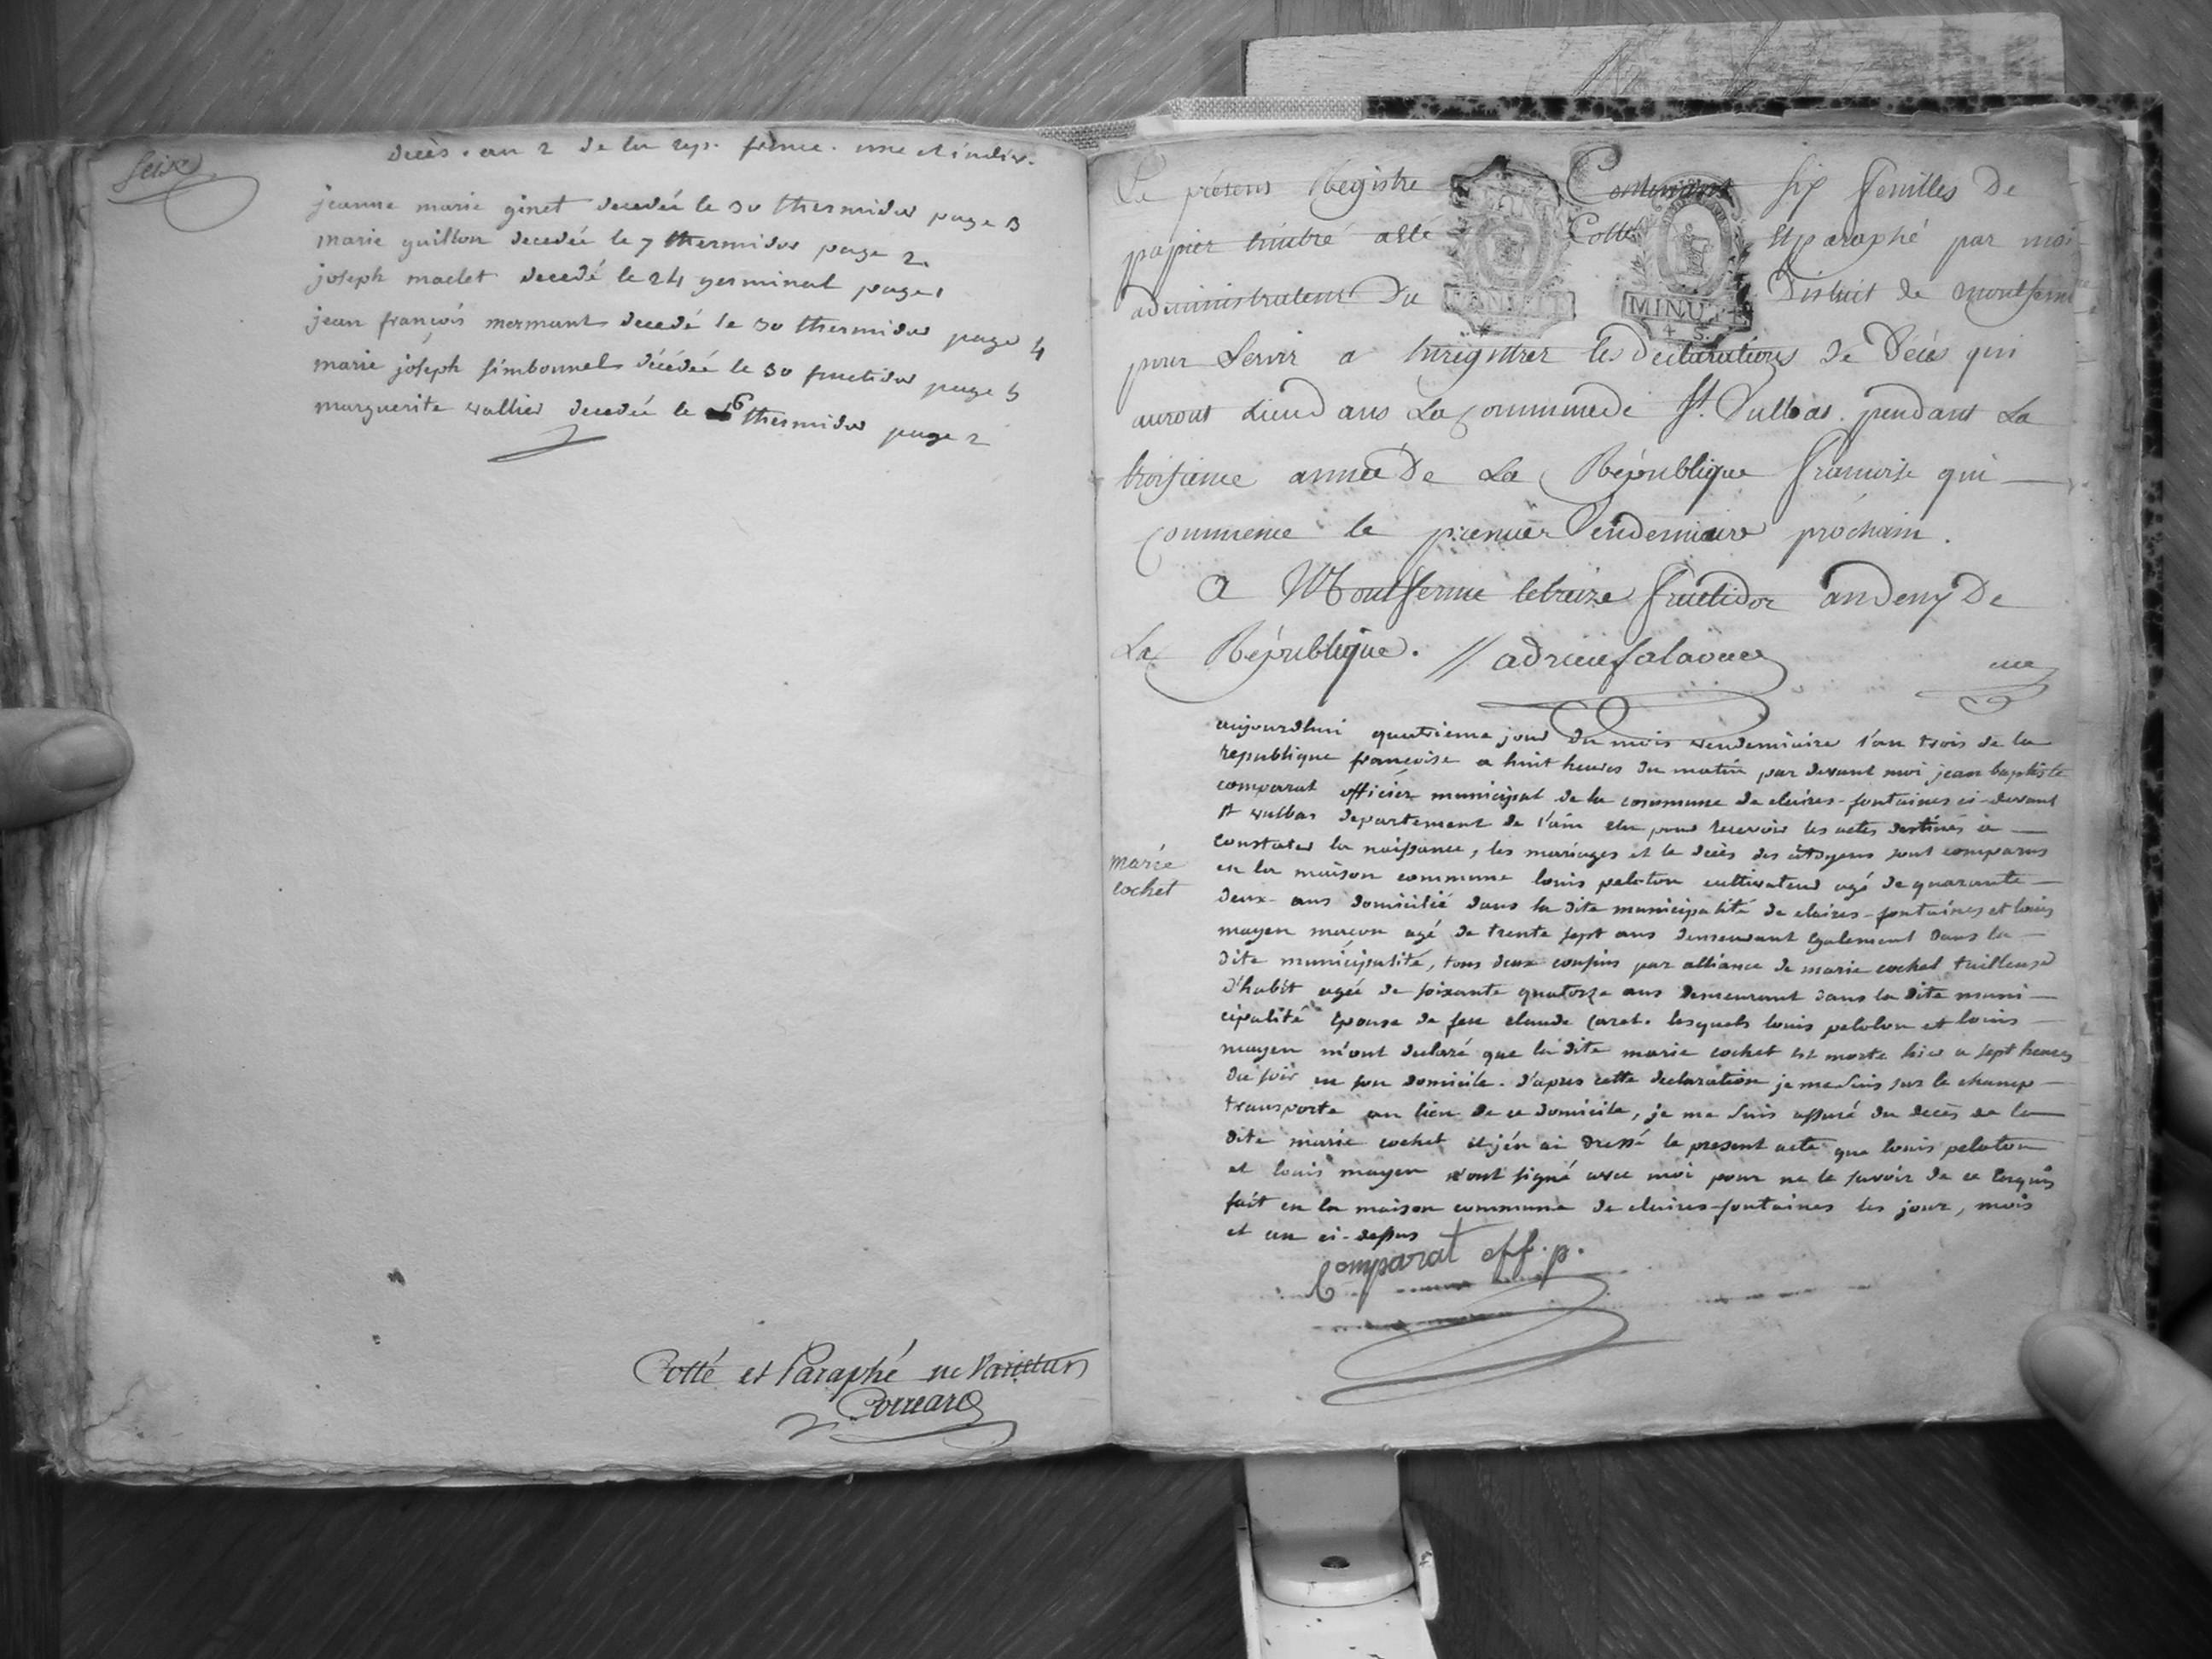 seize
décès. an 2 de la rep. france. une et indiv.
jeanne marie ginet decedée le 30 thermidor page 3
marie guillon decedée le 7 thermidor page 2.
joseph maclet decedé le 24 germinal page 1
jean françois mermant decedé le 30 thermidor page 4
marie joseph simbonnel décédée le 30 fructidor page 5
marguerite vallier decedée le 6 thermidor page 2
Cotté et Paraphé ne Varietur
Le présent Registre Contenant six feuilles De
papier timbré a été Cotté et paraphé par moi
administrateur Du District de montferme
pour Servir a Enregistrer les declarations de Décès qui
auront Lieu dans La Commune de St. Vulbas. pendant La
troisieme année De La République francoise qui
Commence le premier Vendemiaire prochain.
a Montferme le treize fructidor an deux De
La République. //
une
aujourdhui quatrieme jour du mois vendemiaire l'an trois de la
republique françoise a huit heures du matin par devant moi jean baptiste
comparat officier municipal de la commune de claires-fontaines ci-devant
st vulbas departement de l'ain elu pour recevoir les actes destinés a
constater la naissance, les mariages et le décès des citoyens sont comparus
en la maison commune louis peloton cultivateur agé de quarante
deux ans domicilié dans la dite municipalité de claires-fontaines et louis
mayen maçon agé de trente sept ans demeurant egalement dans la
dite municipalité, tous deux cousins par alliance de marie cochet tailleuse
d'habit agée de soixante quatorze ans demeurant dans la dite muni
cipalité epouse de feu claude caret. lesquels louis peloton et louis
mayen m'ont declaré que la dite marie cochet est morte hier a sept heures
du soir en son domicile. d'apres cette declaration je me suis sur le champ
transporté au lieu de ce domicile, je me suis assuré du decès de la
dite marie cochet et j'en ai dressé le present acte que louis peloton
et louis mayen n'ont signé avec moi pour ne le savoir de ce requis
fait en la maison commune de claires-fontaines les jour, mois
et an ci-dessus
marie
cochet
Comparat off. p.
MINUTE